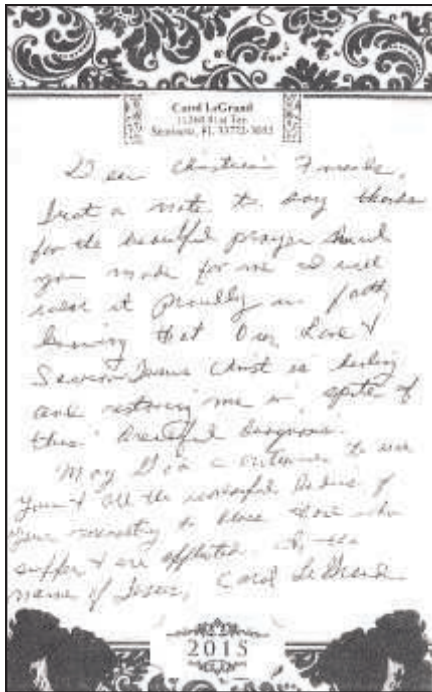 Carol LeGrand
Seminole, FL 33772-
Dear Christian Friends,
Just a note to say thanks
for the beautiful prayer shawl
you made for me I will
wear it proudly in faith
knowing that Our Lord &
Savior Jesus Christ is healing
and restoring me in spite of
this dreadful diagnosis.
May God continue to use
you & all the wonderful ladies of
your ministry to bless those who
suffer & are afflicted. In the
name of Jesus, Carol LeGrand
2015